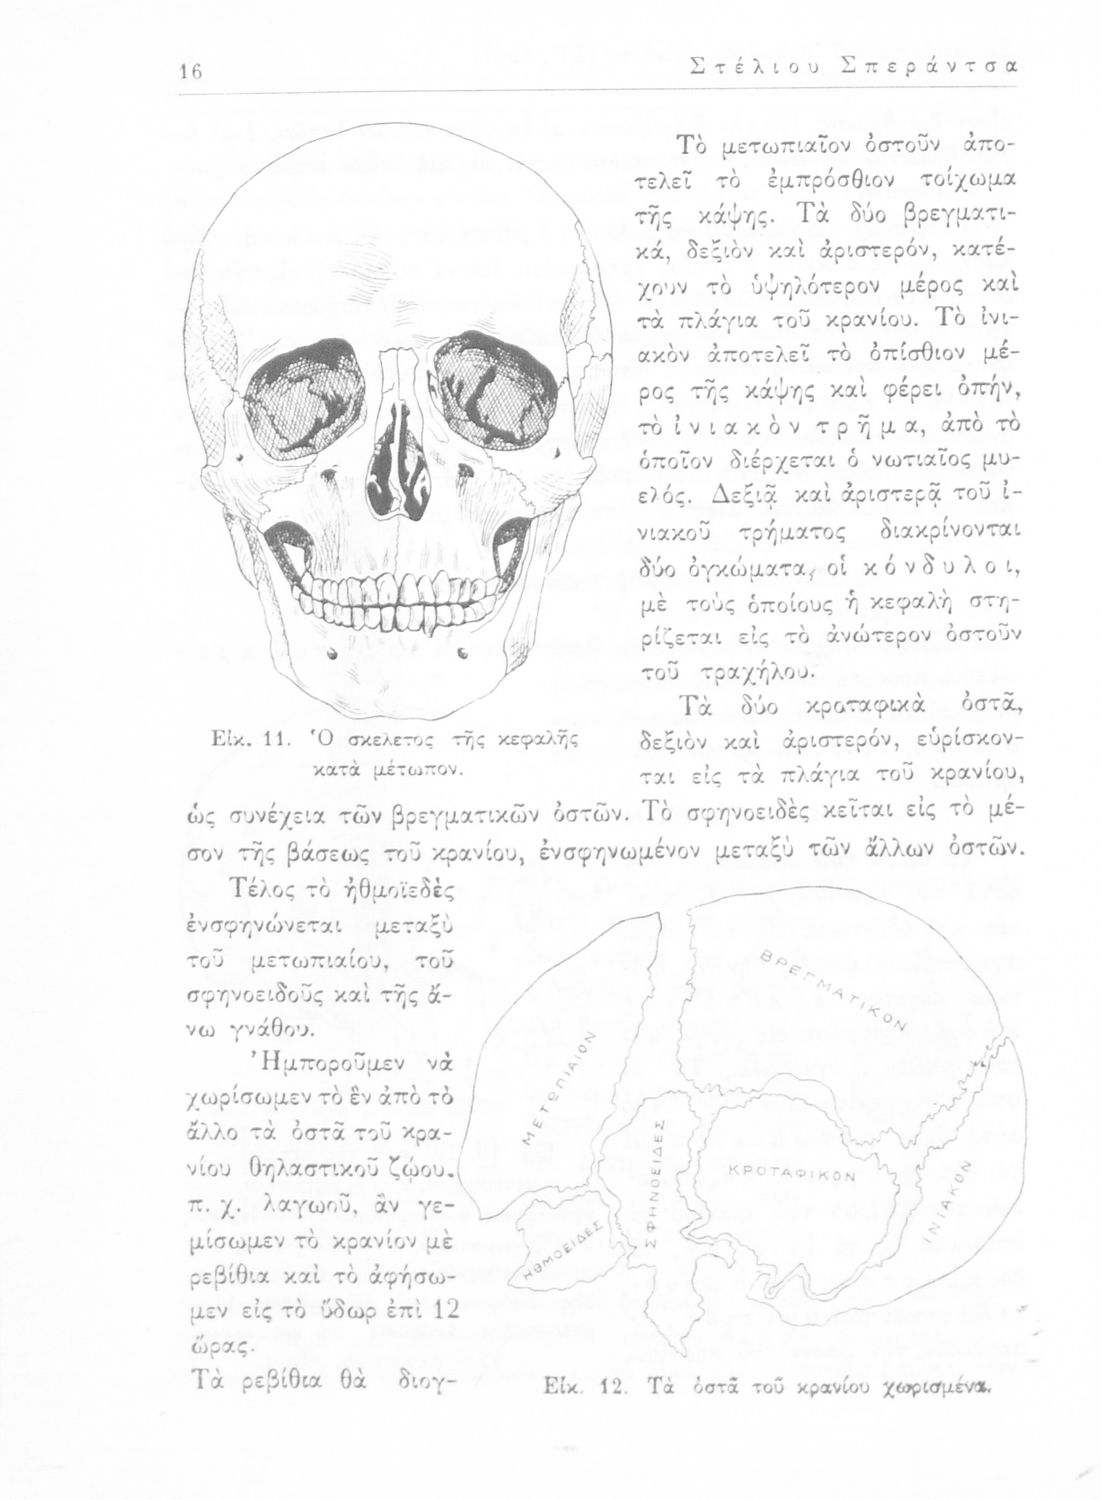 16
Στέλιου Σπεράντσα
Τὸ μετωπιαῖον ὀστοῦν ἀπο-
τελεῖ τὸ ἐμπρόσθιον τοίχωμα
τῆς κάψης. Τὰ δύο βρεγματι-
κά, δεξιὸν καὶ ἀριστερόν, κατέ-
χουν τὸ ὑψηλότερον μέρος καὶ
τὰ πλάγια τοῦ κρανίου. Τὸ ἰνι-
ακὸν ἀποτελεῖ τὸ ὀπίσθιον μέ-
ρος τῆς κάψης καὶ φέρει ὀπήν,
τὸ ἰνιακὸν τρῆμα, ἀπὸ τὸ
ὁποῖον διέρχεται ὁ νωτιαῖος μυ-
ελός. Δεξιᾷ καὶ ἀριστερᾷ τοῦ ἰ-
νιακοῦ τρήματος διακρίνονται
δύο ὀγκώματα, οἱ κόνδυλοι,
μὲ τοὺς ὁποίους ἡ κεφαλὴ στη-
ρίζεται εἰς τὸ ἀνώτερον ὀστοῦν
τοῦ τραχήλου.
Εἰκ. 11. Ὁ σκελετος τῆς κεφαλῆς
κατὰ μέτωπον.
Τὰ δύο κροταφικὰ ὀστᾶ,
δεξιὸν καὶ ἀριστερόν, εὑρίσκον-
ται εἰς τὰ πλάγια τοῦ κρανίου,
ὡς συνέχεια τῶν βρεγματικῶν ὀστῶν. Τὸ σφηνοειδὲς κεῖται εἰς τὸ μέ-
σον τῆς βάσεως τοῦ κρανίου, ἐνσφηνωμένον μεταξὺ τῶν ἄλλων ὀστῶν.
Τέλος τὸ ἠθμοϊεδὲς
ἐνσφηνώνεται μεταξὺ
τοῦ μετωπιαίου, τοῦ
σφηνοειδοῦς καὶ τῆς ἄ-
νω γνάθου.
Ἠμποροῦμεν νὰ
χωρίσωμεν τὸ ἓν ἀπὸ τὸ
ἄλλο τὰ ὀστᾶ τοῦ κρα-
νίου θηλαστικοῦ ζῴου.
π. χ. λαγωοῦ, ἂν γε-
μίσωμεν τὸ κρανίον μὲ
ρεβίθια καὶ τὸ ἀφήσω-
μεν εἰς τὸ ὕδωρ ἐπὶ 12
ὥρας.
Τὰ ρεβίθια θὰ διογ-
ΒΡΕΓΜΑΤΙΚΟΝ
ΜΕΤΩΠΙΑΙΟΝ
ΣΦΗΝΟΕΙΔΕΣ
ΚΡΟΤΑΦΙΚΟΝ
ΙΝΙΑΚΟΝ
ΗΘΜΟΕΙΔΕΣ
Εἰκ. 12. Τὰ ὀστᾶ τοῦ κρανίου χωρισμένα.